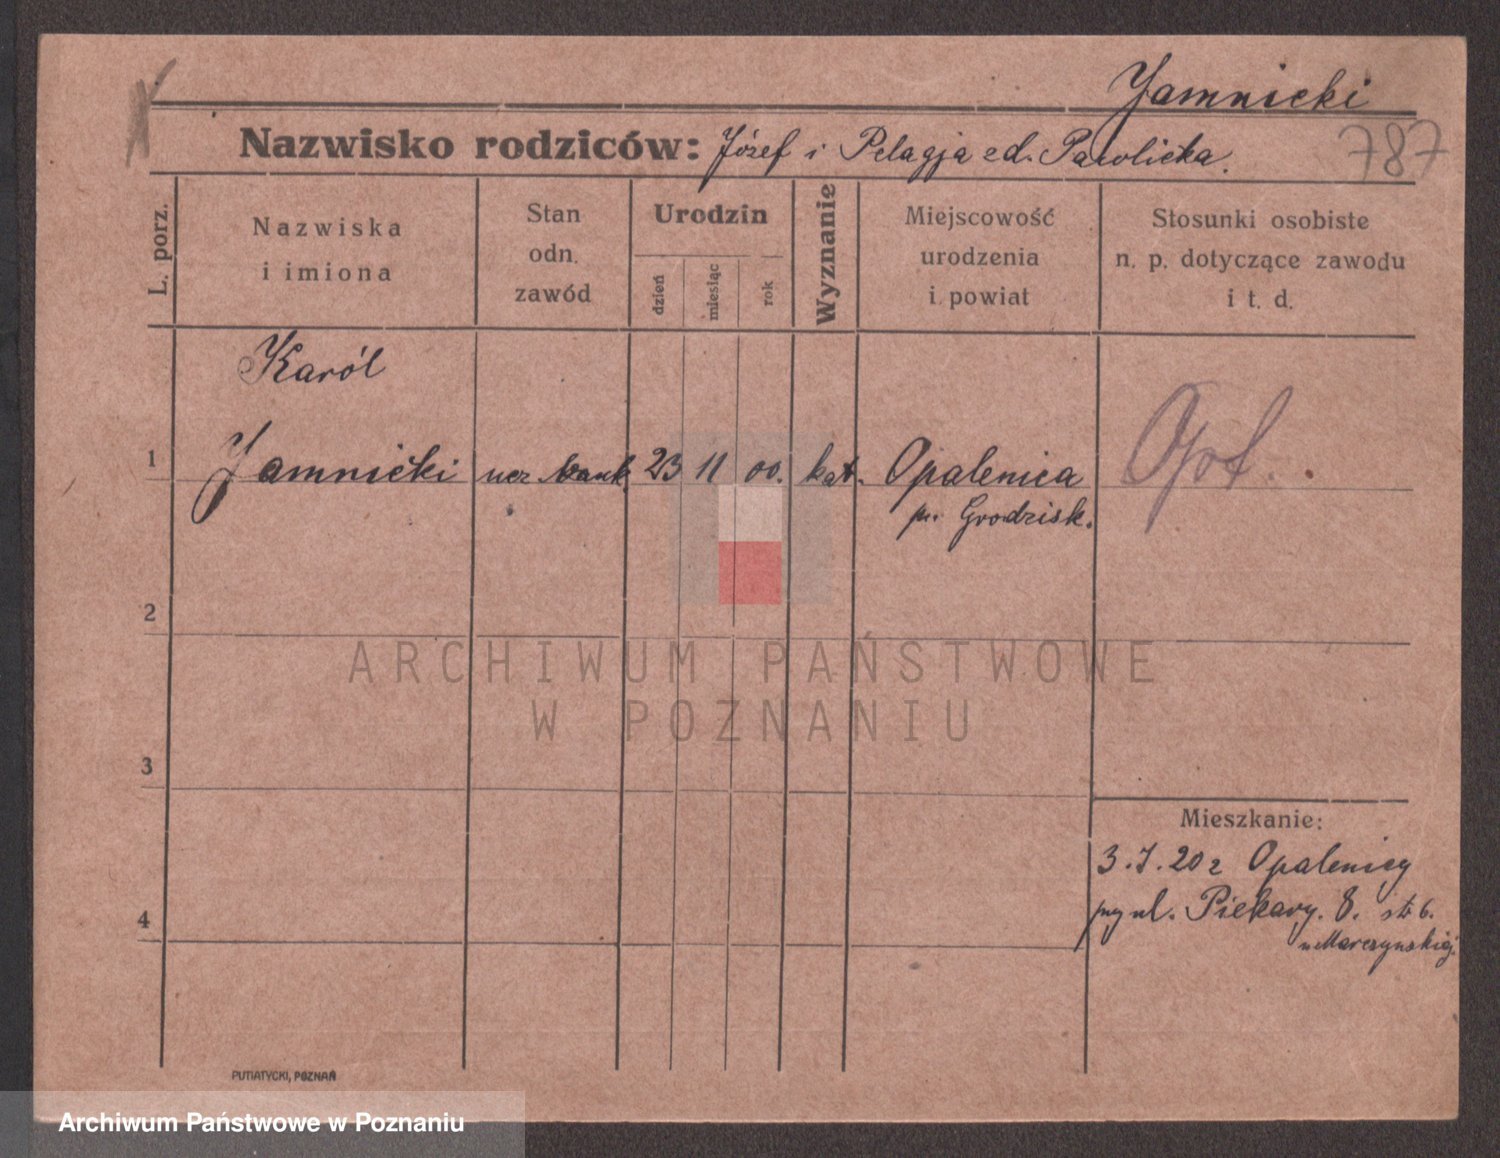 Jamnicki
Nazwisko rodziców: Józef i Pelagja zd. Pawlicka.
787
L. porz.
Nazwiska
i imiona
Stan
odn.
zawód
Urodzin
dzień
miesiąc
rok
Wyznanie
Miejscowość
urodzenia
i powiat
Stosunki osobiste
n. p. dotyczące zawodu
i t. d.
Karól
1 Jamnicki ucz. bank. 23 11 00. kat. Opalenica
p. Grodzisk.
2
3
4
Mieszkanie:
3.7.20 z Opalenicy
przy ul. Piekary. 8. str 6.
u Marczynskiej
PUTIATYCKI, POZNAŃ
ARCHIWUM PAŃSTWOWE
W POZNANIU
Archiwum Państwowe w Poznaniu